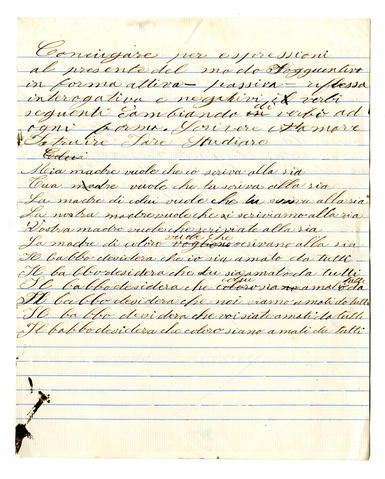 Coniugare per espressioni
al presente del modo Soggiuntivo
in forma attiva – passiva – riflessa
interogativa e negativi di verbi
seguenti Cambiando verbo ad
ogni forma. Scrivere Amare
Istruire Fare Studiare
Mia madre vuole che io scriva alla zia
Tua madre vuole che tu scriva alla zia
La madre di colui vuole che scriva alla zia
La nostra madre vuole che si scriviamo alla zia
Vostra madre vuole che scriviate alla zia
La madre di coloro vuole che vogliono scrivano alla zia
Il babbo desidera che io sia amato da tutti
Il babbo desidera che tu sia amato da tutti
Il babbo desidera che colui coloro amato da tutti
Il babbo desidera che noi siamo amati da tutti
Il babbo desidera che voi siate amati da tutti
Il babbo desidera che coloro siano amati da tutti